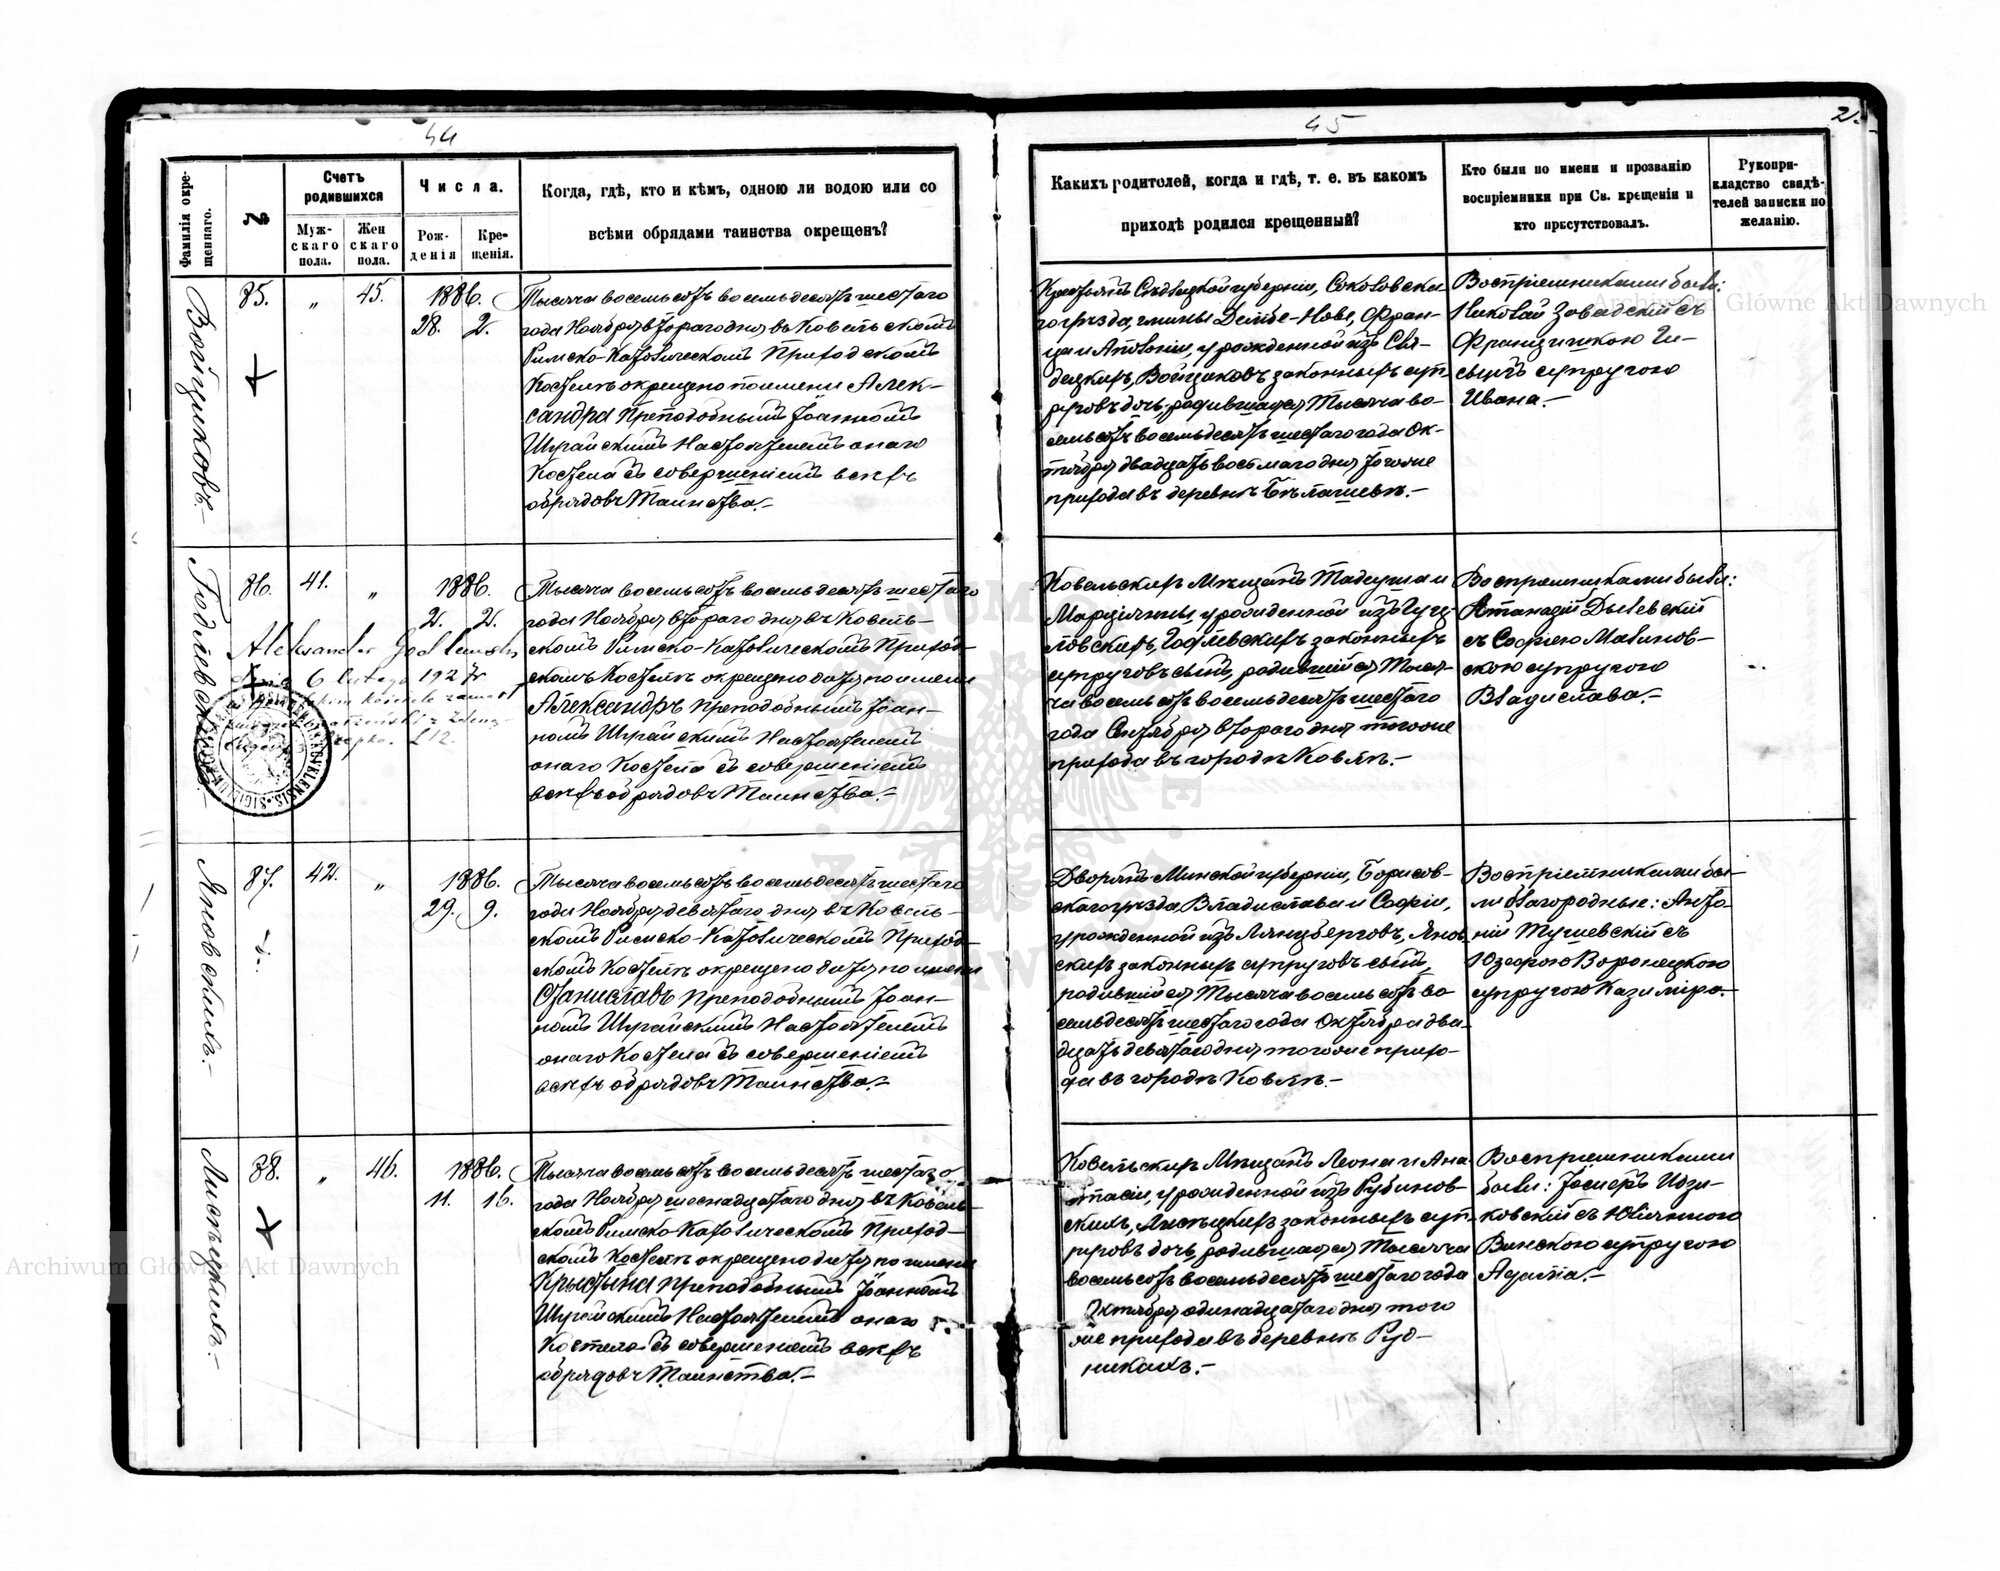 44
Фамилія окре-
щеннаго.
№
Счетъ
родившихся
Муж-
скаго
пола.
Жен
скаго
пола.
Числа.
Рож-
денія
Кре-
щенія.
Когда, гдѣ, кто и кѣмъ, одною ли водою или со
всѣми обрядами таинства окрещенъ?
Войцуковъ.-
85.
„
45.
1886.
28. 2.
Тысяча восемьсотъ восемьдесятъ шестаго
года Ноября втораго дня въ Ковельскомъ
Римско-Католическомъ Приходскомъ
Костелѣ окрещено по имени Алек-
сандра Преподобнымъ Іоанномъ
Шурайскимъ Настоятелемъ онаго
Костела съ совершеніемъ всѣхъ
обрядовъ Таинства.-
86.
41.
„
1886.
2. 2.
Aleksander Godlewski
6 lutego 1927 r
Тысяча восемьсотъ восемьдесятъ шестаго
года Ноября втораго дня въ Ковель-
скомъ Римско-Католическомъ Приход-
скомъ Костелѣ окрещено дитя по имени
Александръ Преподобнымъ Іоан-
номъ Шурайскимъ Настоятелемъ
онаго Костела съ совершеніемъ
всѣхъ обрядовъ Таинства.-
Яновскихъ.-
87.
42.
„
1886.
29. 9.
Тысяча восемьсотъ восемьдесятъ шестаго
года Ноября девятаго дня въ Ковель-
скомъ Римско-Католическомъ Приход-
скомъ Костелѣ окрещено дитя по имени
Станиславъ Преподобнымъ Іоан-
номъ Шурайскимъ Настоятелемъ
онаго Костела съ совершеніемъ
всѣхъ обрядовъ Таинства.-
Лисѣцкихъ.-
88.
„
46.
1886.
11. 16.
Тысяча восемьсотъ восемьдесятъ шестаго
года Ноября шеснадцатаго дня въ Ковель-
скомъ Римско-Католическомъ Приход-
скомъ Костелѣ окрещено дитя по имени
Крыстына Преподобнымъ Іоанномъ
Шурайскимъ Настоятелемъ онаго
Костела съ совершеніемъ всѣхъ
обрядовъ Таинства.-
45
2.
Какихъ родителей, когда и гдѣ, т. е. въ какомъ
приходѣ родился крещенный?
Кто были по имени и прозванію
воспріемники при Св. крещеніи и
кто присутствовалъ.
Рукопри-
кладство свидѣ-
телей записки по
желанію.
Крестьянъ Сѣдлецкой губерніи, Соколовска-
го уѣзда, гмины Дембе-Нове, Фран-
ца и Аполоніи, урожденной изъ
Войцуковъ законныхъ суп-
руговъ дочь, родившаяся Тысяча во-
семьсотъ восемьдесятъ шестаго года Ок-
тября двадцать восьмаго дня тогоже
прихода въ деревнѣ Бѣлашевѣ.-
Воспріемниками были:
Николай Завадскій съ
Францишкою
супругою
Ивана.-
Ковельскихъ Мѣщанъ Тадеуша и
Марціянны, урожденной изъ
Годлевскихъ законныхъ
супруговъ сынъ, родившійся Тыся-
ча восемьсотъ восемьдесятъ шестаго
года втораго дня тогоже
прихода въ городѣ Ковлѣ.-
Воспріемниками были:
Атаназій Дылевскій
съ Софіею Малинов-
скою супругою
Владислава.-
Дворянъ Минской губерніи, Борисов-
скаго уѣзда, Владислава и Софіи,
урожденной изъ Лянцберговъ, Янов-
скихъ законныхъ супруговъ сынъ,
родившійся Тысяча восемьсотъ во-
семьдесятъ шестаго года Октября два-
дцать девятаго дня тогоже прихо-
да въ городѣ Ковлѣ.-
Воспріемниками бы-
ли благородные: Анто-
ній Тушевскій съ
Юзефою Воронецкою
супругою Казиміра.-
Ковельскихъ Мѣщанъ Леона и Ана-
стасіи, урожденной изъ Рубинов-
скихъ, Лисѣцкихъ законныхъ суп-
руговъ дочь, родившаяся Тысяча
восемьсотъ восемьдесятъ шестаго года
Октября одинадцатаго дня того
же прихода въ деревнѣ Руд-
никахъ.-
Воспріемниками
были: Іосифъ Идзи-
ковскій съ Юліянною
Винскою супругою
Адама.-
Archiwum Główne Akt Dawnych
Archiwum Główne Akt Dawnych